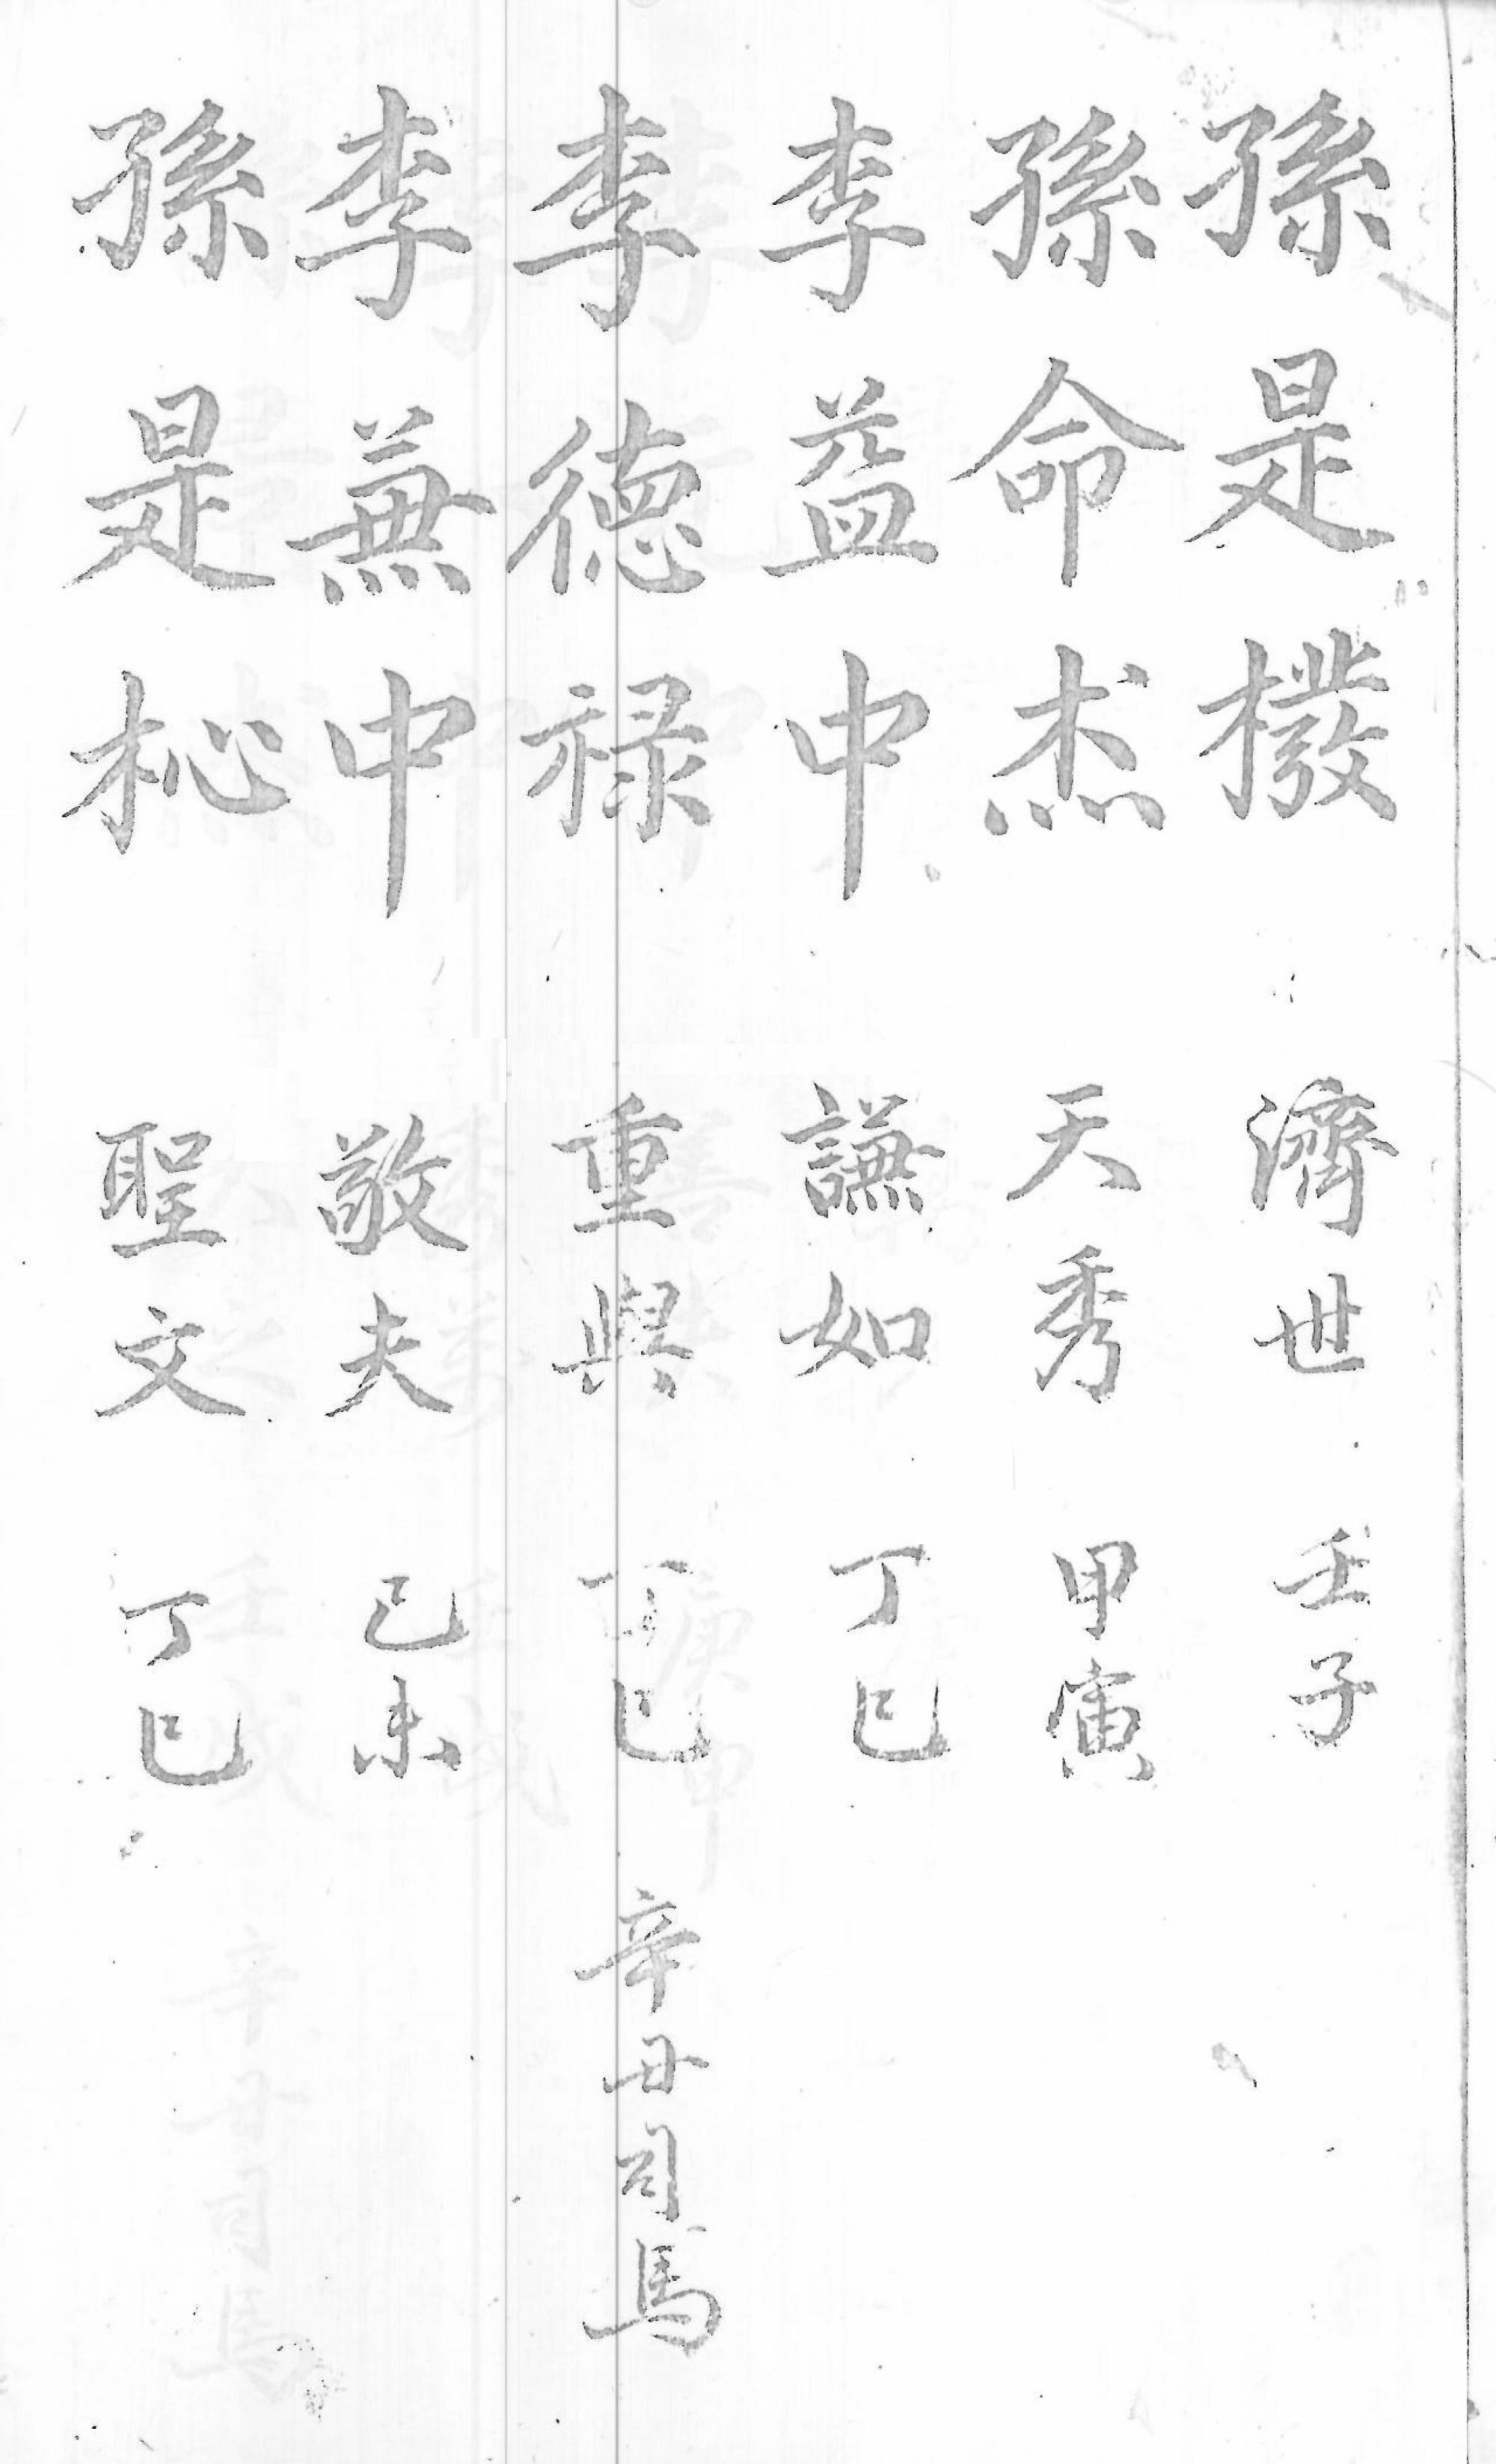 孫是橃 濟世 壬子
孫命杰 天秀 甲寅
李益中 謙如 丁巳
李德禄 重興 丁巳 辛丑司馬
李兼中 敬夫 己未
孫是杺 聖文 丁巳